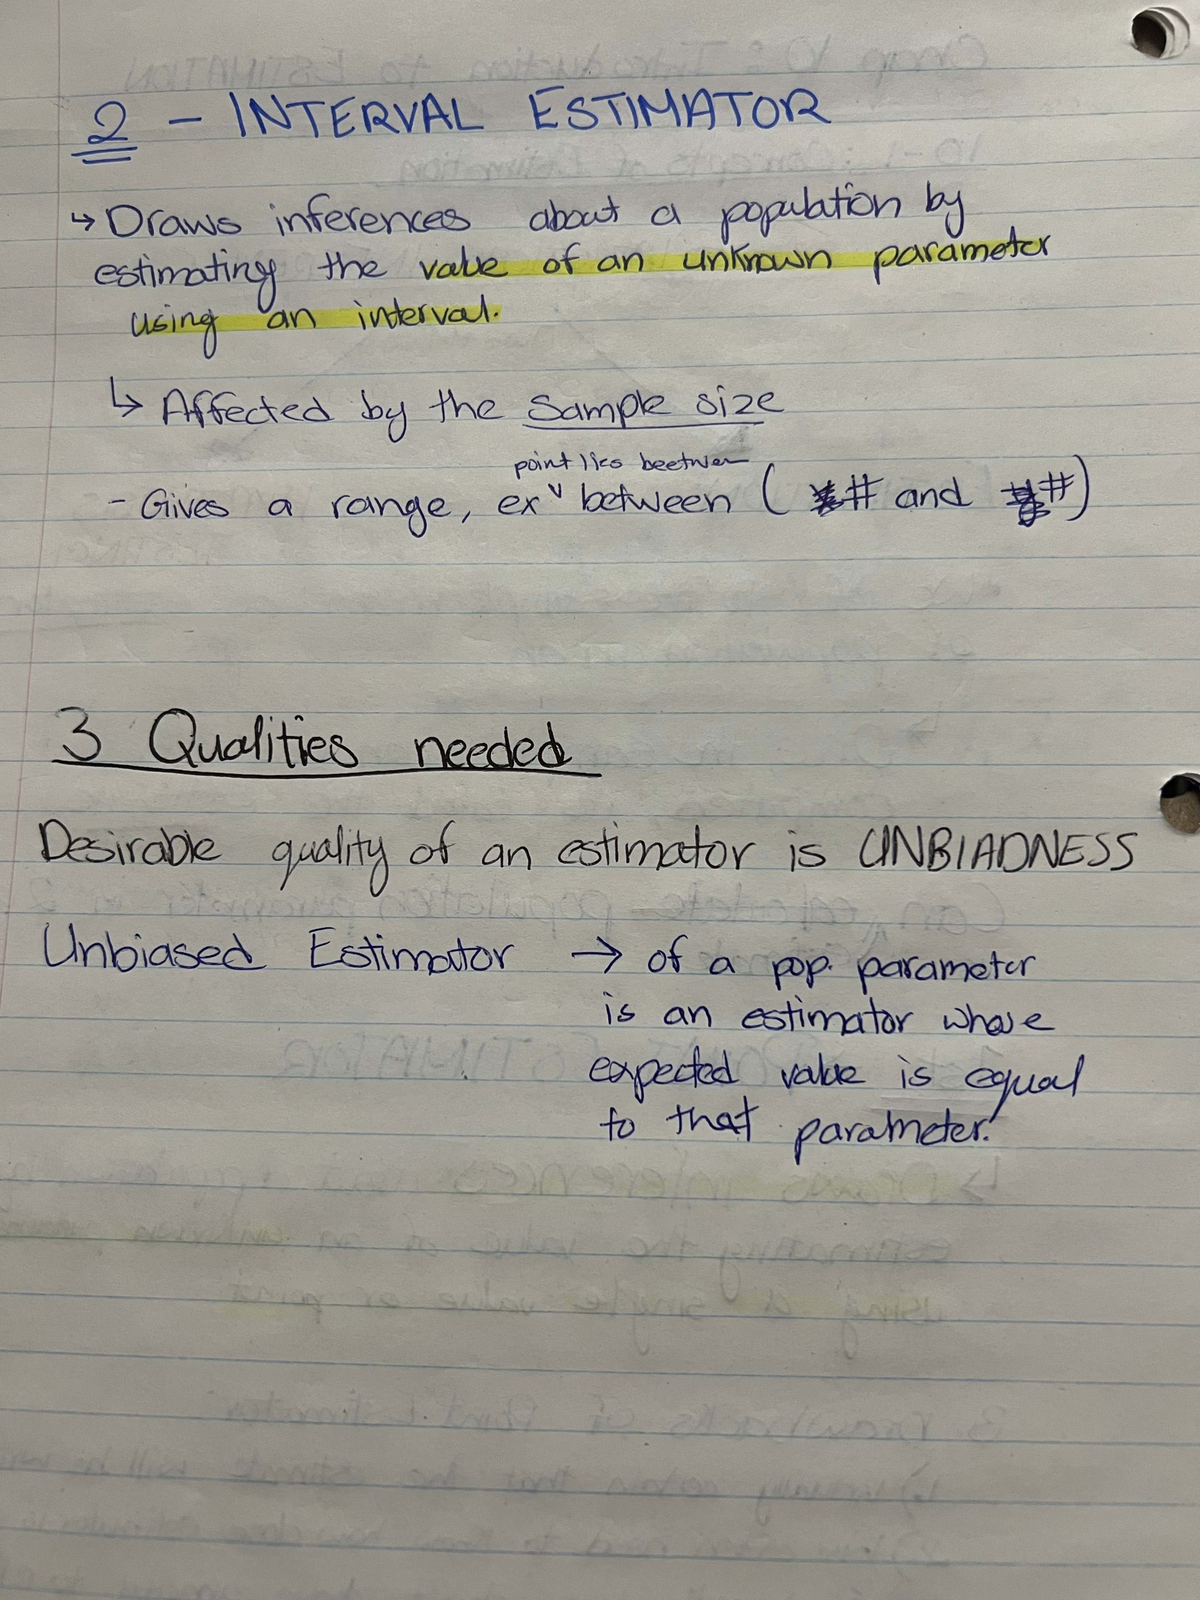 2 - INTERVAL ESTIMATOR
↳ Draws inferences about a population by
estimating the value of an unknown parameter
using an interval.
↳ Affected by the sample size
point lies beetwen
- Gives a range, ex ˅ between ( # and # )
3 Qualities needed
Desirable quality of an estimator is UNBIADNESS
Unbiased Estimator → of a pop. parameter
is an estimator whose
expected value is equal
to that parameter.